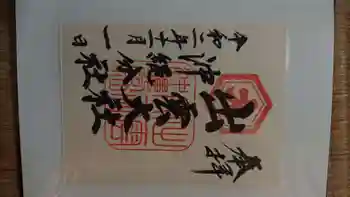 奉拝
出雲大社
沖縄分社
令和二年十一月一日